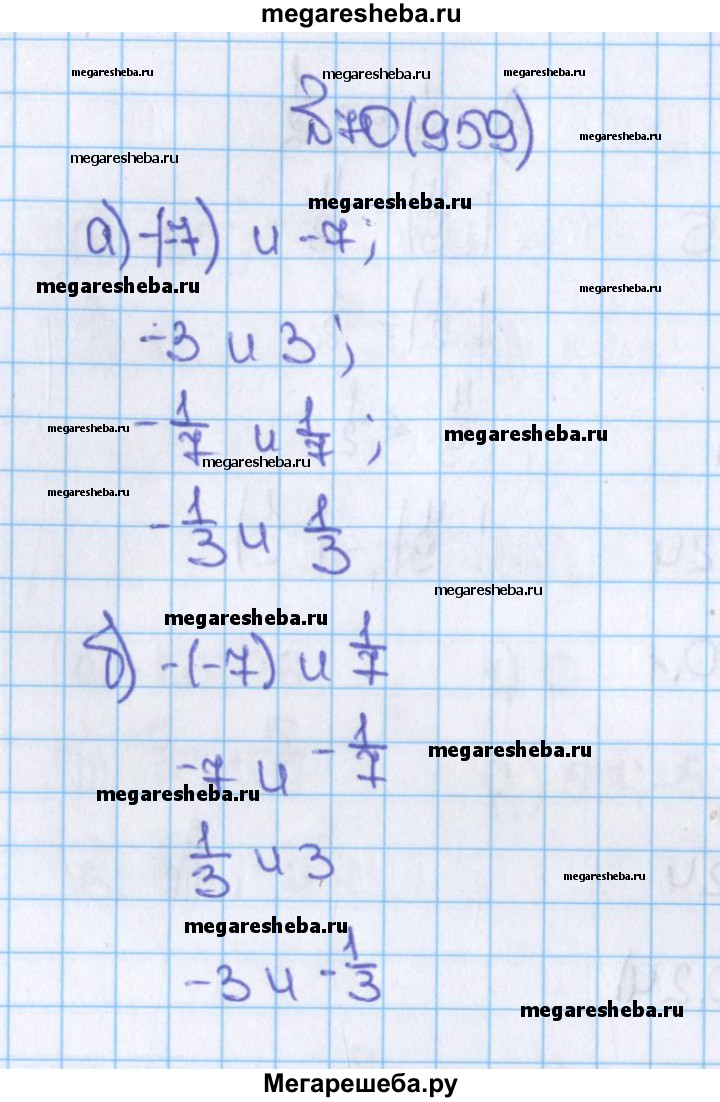 megaresheba.ru
megaresheba.ru megaresheba.ru megaresheba.ru
№70(959)
megaresheba.ru
megaresheba.ru
megaresheba.ru
а) -(-7) и -7;
megaresheba.ru
megaresheba.ru
-3 и 3;
-1/7 и 1/7;
megaresheba.ru
megaresheba.ru
megaresheba.ru
megaresheba.ru
-1/3 и 1/3
megaresheba.ru
megaresheba.ru
б) -(-7) и 1/7
-7 и -1/7
megaresheba.ru
megaresheba.ru
1/3 и 3
megaresheba.ru
megaresheba.ru
-3 и -1/3
megaresheba.ru
Мегарешеба.ру